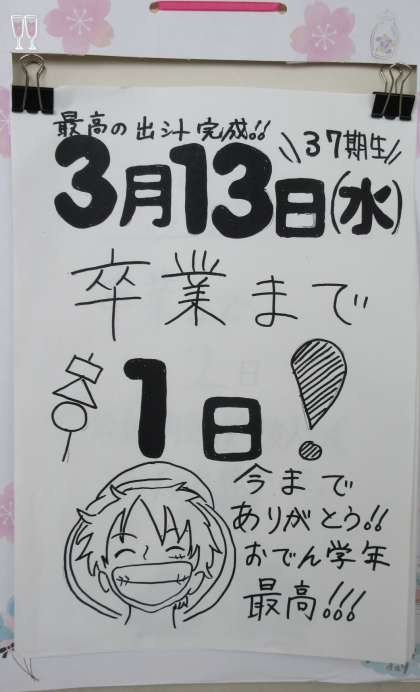 最高の出汁完成!!
\\37期生//
3月13日(水)
卒業まで
1日!
今まで
ありがとう!!
おでん学年
最高!!!